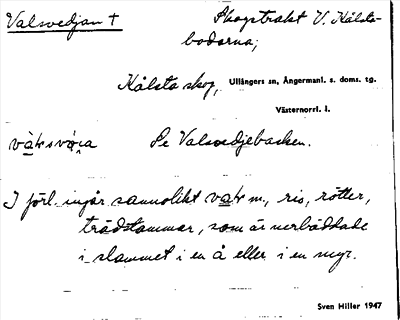 Valsvedjan †
Skogstrakt V. Kålsta-
bodarna;
Kålsta skog, Ullångers sn, Ångermanl. s. doms. tg.
Västernorrl. l.
Se Valsvedjebacken.
I förl. ingår sannolikt m., ris, rötter,
trädstammar, som är nerbäddade
i slammet i en å eller i en myr.
Sven Hiller 1947